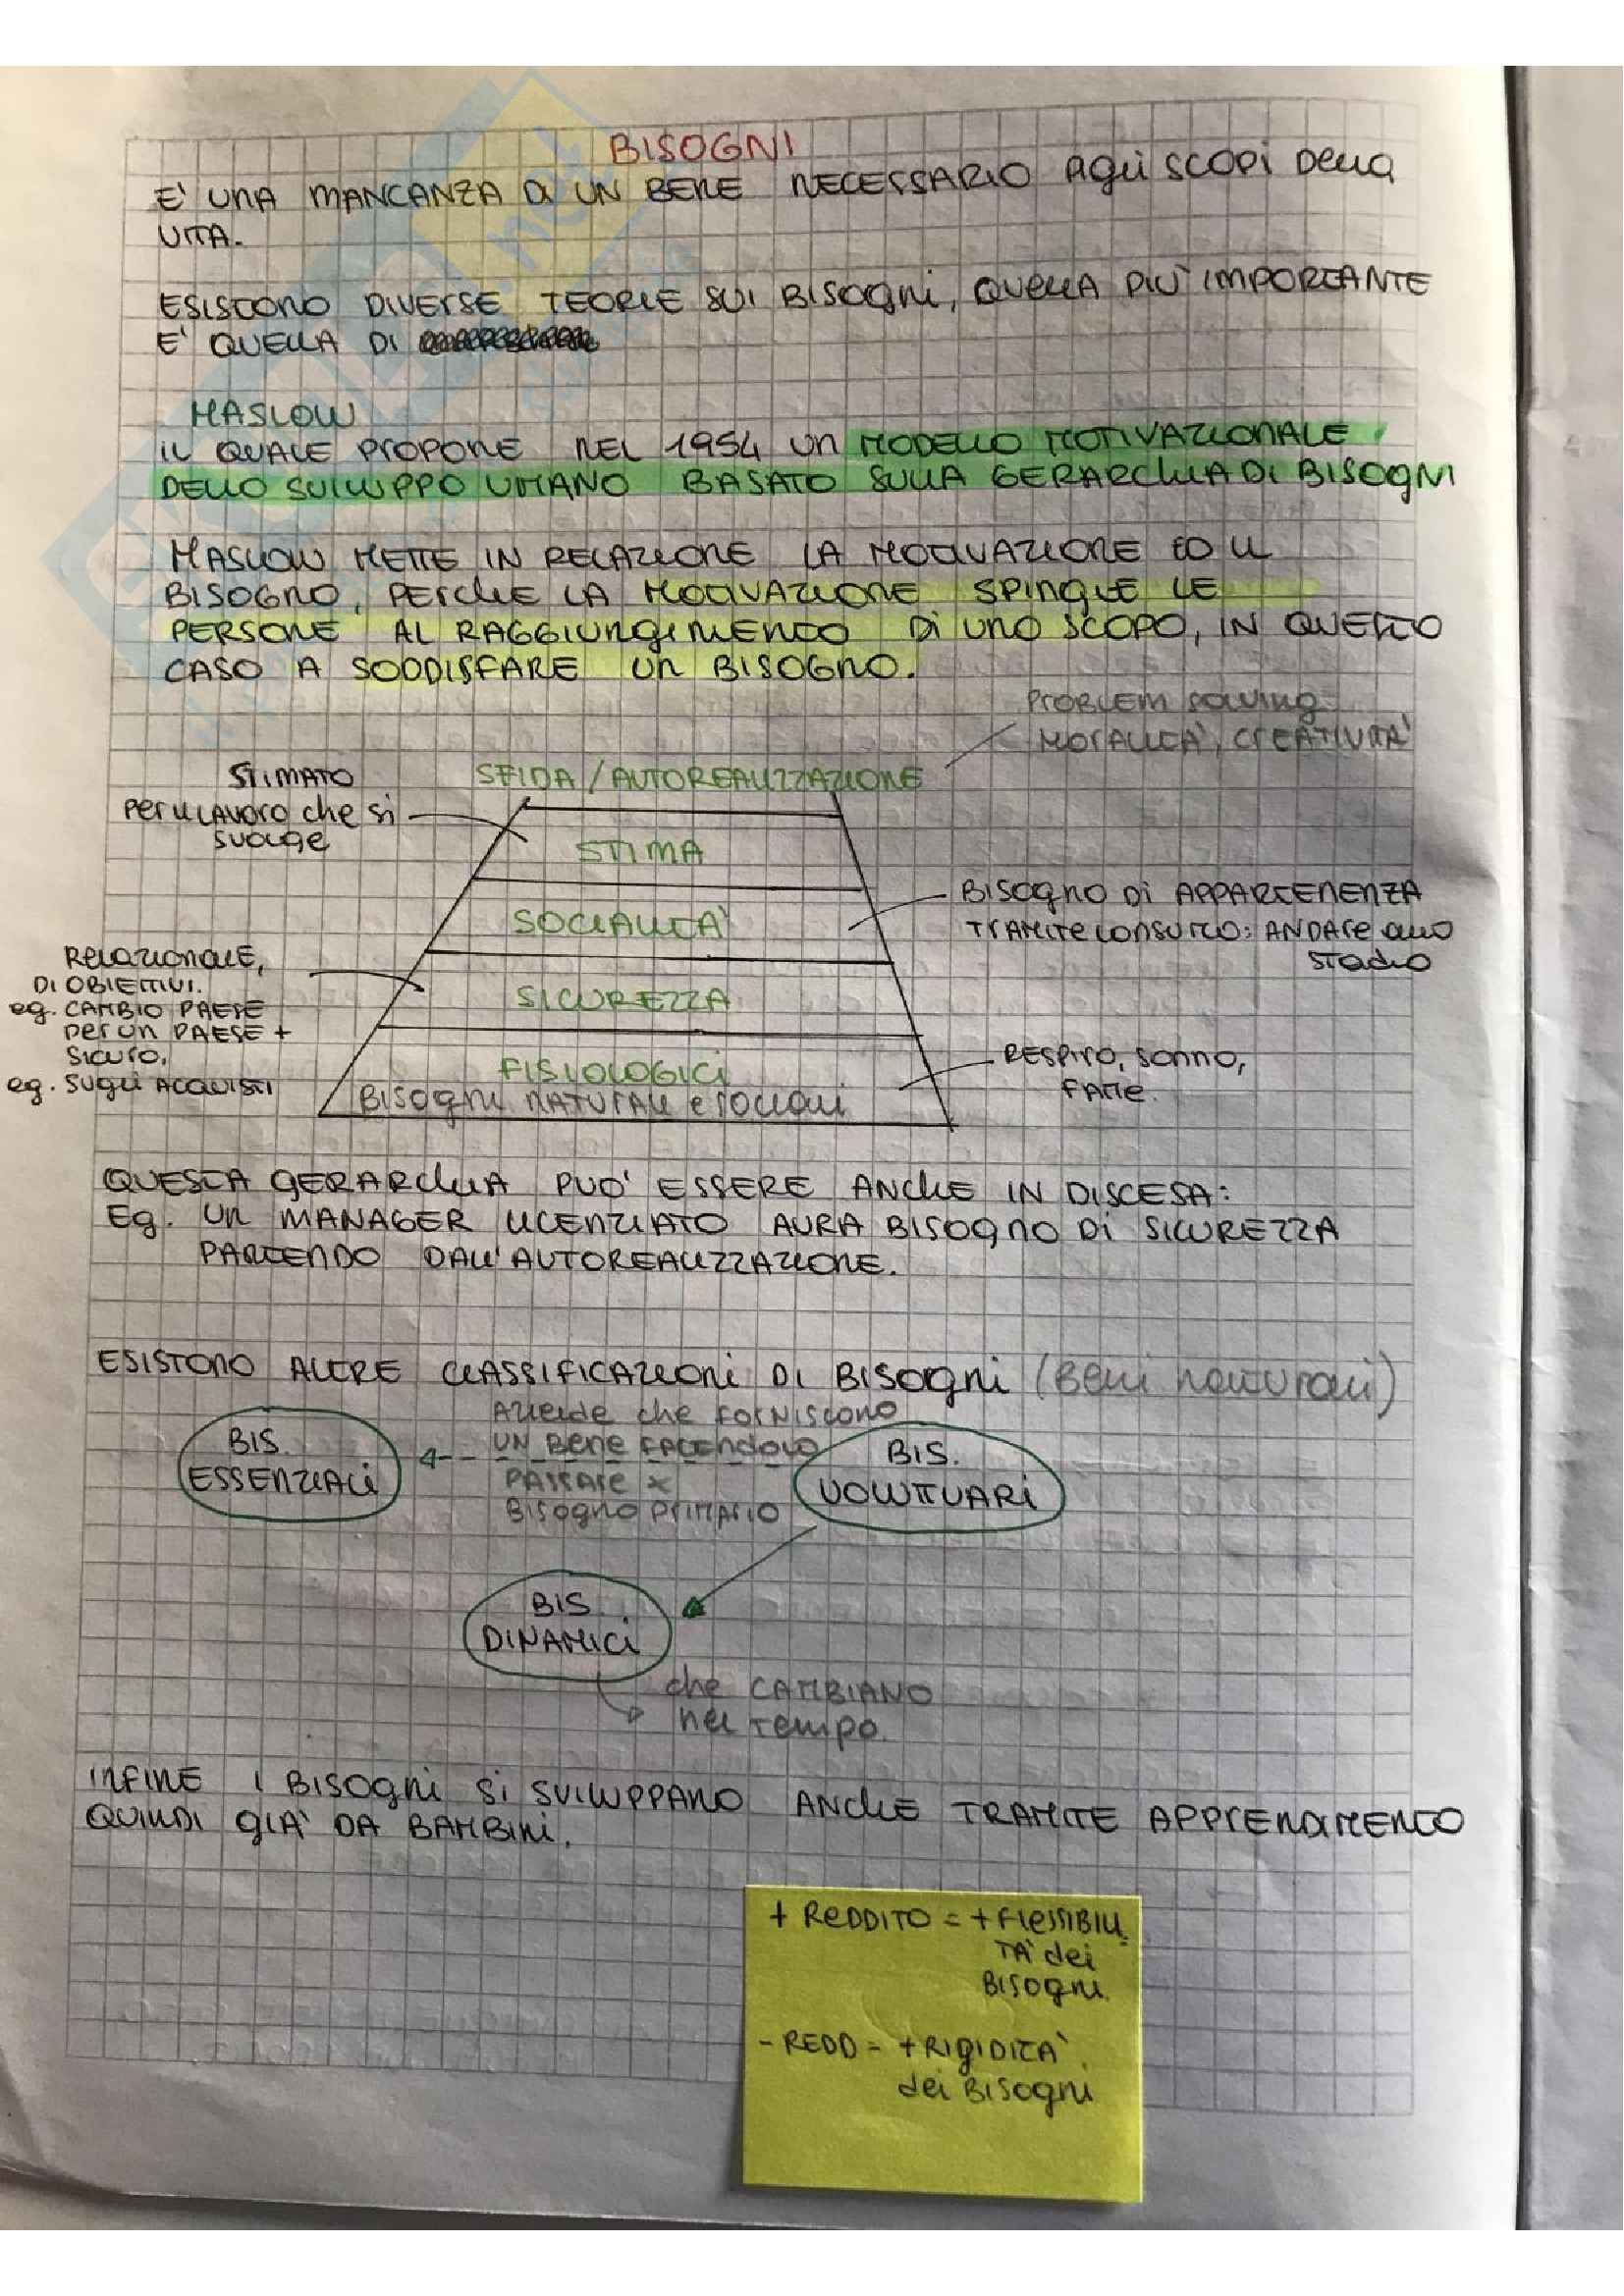 BISOGNI
E' UNA MANCANZA DI UN BENE NECESSARIO AGLI SCOPI DELLA
VITA.
ESISTONO DIVERSE TEORIE SUI BISOGNI, QUELLA PIU' IMPORTANTE
E' QUELLA DI
MASLOW
IL QUALE PROPONE NEL 1954 UN MODELLO MOTIVAZIONALE
DELLO SVILUPPO UMANO BASATO SULLA GERARCHIA DI BISOGNI
MASLOW METTE IN RELAZIONE LA MOTIVAZIONE ED IL
BISOGNO, PERCHE LA MOTIVAZIONE SPINGE LE
PERSONE AL RAGGIUNGIMENTO DI UNO SCOPO, IN QUESTO
CASO A SODDISFARE UN BISOGNO.
PROBLEM SOLVING
MORALITA', CREATIVITA'
STIMATO
PER IL LAVORO CHE SI
SVOLGE
SFIDA / AUTOREALIZZAZIONE
STIMA
SOCIALITA'
BISOGNO DI APPARTENENZA
TRAMITE CONSUMO: ANDARE ALLO
STADIO
RELAZIONALE,
DI OBIETTIVI.
eg. CAMBIO PAESE
PER UN PAESE +
SICURO,
eg. SUGLI ACQUISTI
SICUREZZA
FISIOLOGICI
BISOGNI NATURALI e SOCIALI
RESPIRO, SONNO,
FAME.
QUESTA GERARCHIA PUO' ESSERE ANCHE IN DISCESA:
Eg. UN MANAGER LICENZIATO AVRA BISOGNO DI SICUREZZA
PARTENDO DALL'AUTOREALIZZAZIONE.
ESISTONO ALTRE CLASSIFICAZIONI DI BISOGNI (BENI NATURALI)
BIS.
ESSENZIALI
AZIENDE CHE FORNISCONO
UN BENE FACENDOLO
PASSARE x
BISOGNO PRIMARIO
BIS.
VOLUTTUARI
BIS.
DINAMICI
CHE CAMBIANO
NEL TEMPO.
INFINE I BISOGNI SI SVILUPPANO ANCHE TRAMITE APPRENDIMENTO
QUINDI GIA' DA BAMBINI.
+ REDDITO = + FLESSIBILI
TA' dei
BISOGNI.
- REDD = + RIGIDITA'
dei BISOGNI